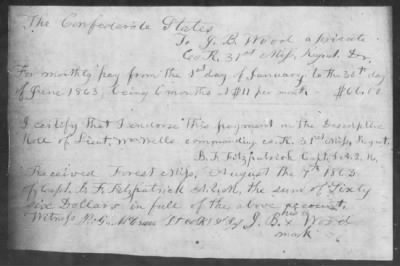 The Confederate States
To J. B. Wood a private
Co K. 31st Miss. Regmt. Dr.
For monthly pay from the 1st day of January to the 30th day
of June 1863, being 6 months at $11 per month - $66.00
I certify that I endorse this payment on the Descriptive
Roll of Lieut. commanding co. K. 31st Miss. Regmt.
B. F. Fitzpatrick Capt.
Received Forest Miss, August the 9th 1863
of Capt. B. F. Fitzpatrick the sum of Sixty
six Dollars in full of the above account.
Witness J. B. his x Wood
mark